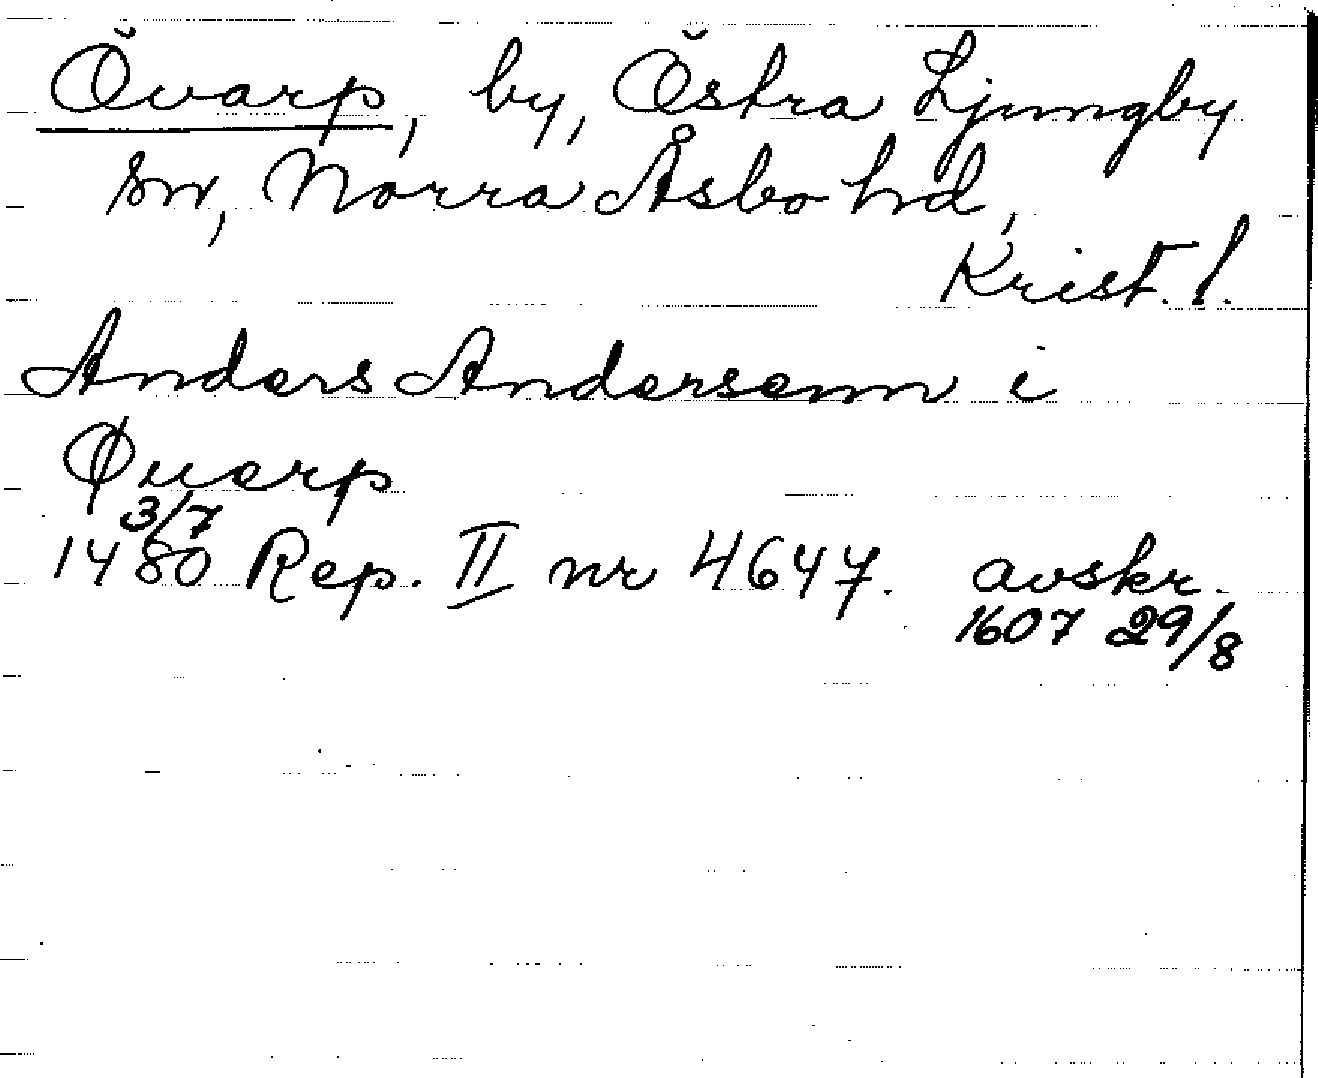 Övarp, by, Östra Ljungby
sn, Norra Åsbo hd,
Krist. l.
Anders Andersenn i
Øuerp
3/7
1480 Rep. II nr 4647. avskr.
1607 29/8